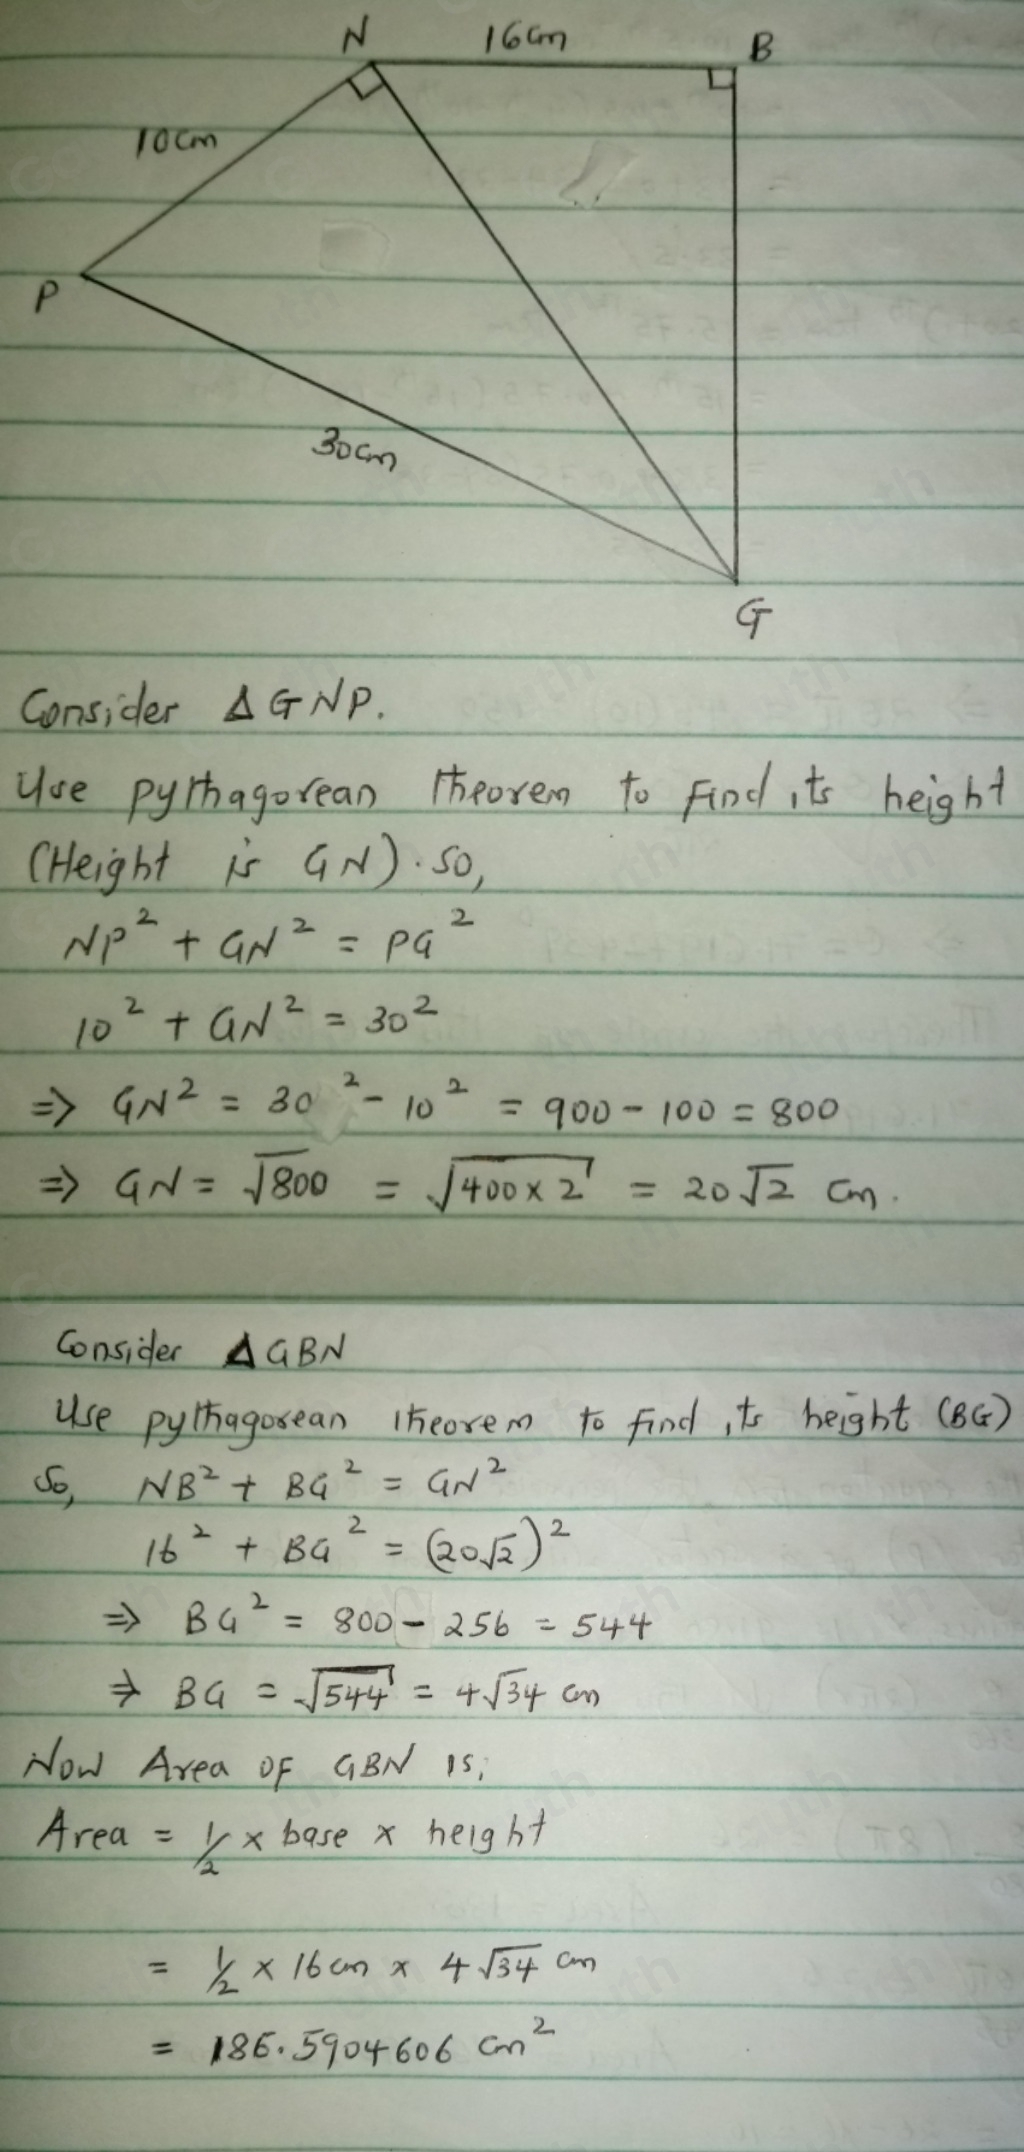 N 16cm B
10cm
P
30cm
G
Consider ΔGNP.
Use pythagorean theorem to find its height
(Height is GN). So,
NP² + GN² = PG²
10² + GN² = 30²
⇒ GN² = 30² - 10² = 900 - 100 = 800
⇒ GN = √800 = √400×2 = 20√2 cm.
Consider ΔGBN
Use pythagorean theorem to find its height (BG)
So, NB² + BG² = GN²
16² + BG² = (20√2)²
⇒ BG² = 800 - 256 = 544
⇒ BG = √544 = 4√34 cm
Now Area of GBN is,
Area = 1/2 × base × height
= 1/2 × 16cm × 4√34 cm
= 186.5904606 cm²